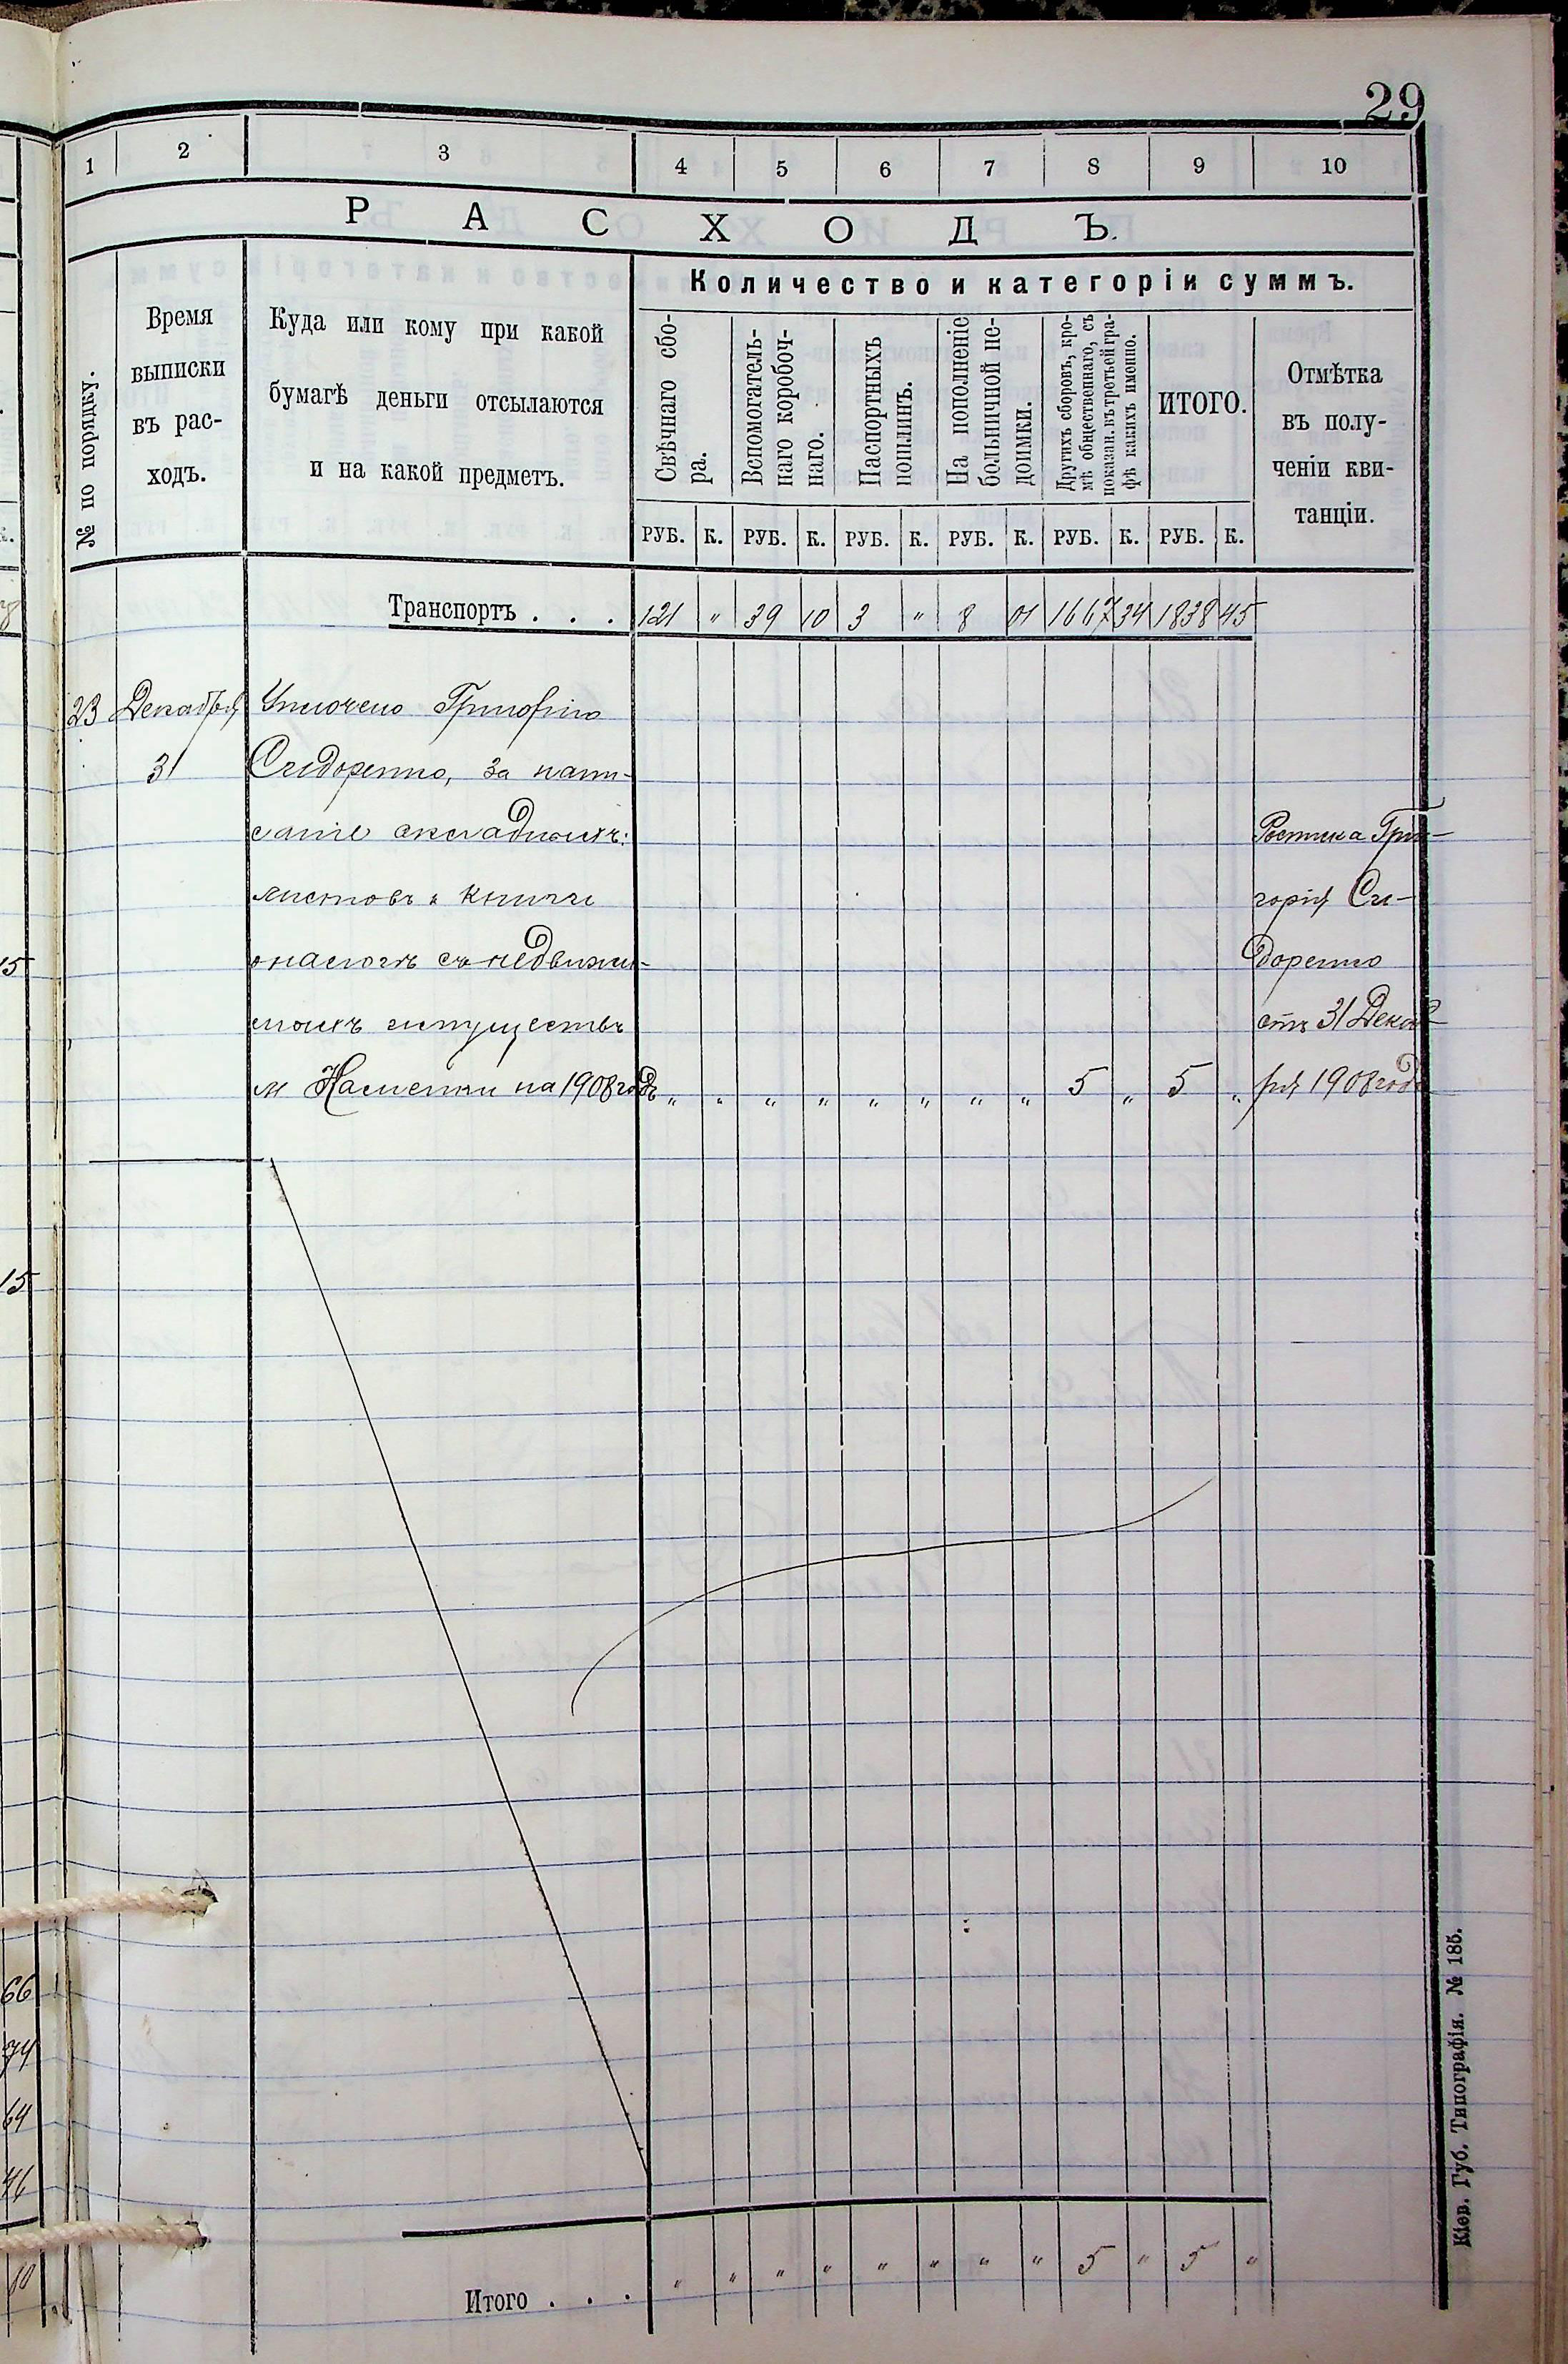 29
1 2 3 4 5 6 7 8 9 10
РАСХОДЪ.
№ по порядку.
Время
выписки
въ рас-
ходъ.
Куда или кому при какой
бумагѣ деньги отсылаются
и на какой предметъ.
Количество и категоріи суммъ.
Свѣчнаго сбо-
ра.
Вспомогатель-
наго коробоч-
наго.
Паспортныхъ
пошлинъ.
На пополненіе
больничной не-
доимки.
Другихъ сборовъ, кро-
мѣ общественнаго, съ
показан. въ третьей гра-
фѣ какихъ именно.
ИТОГО.
Отмѣтка
въ полу-
ченіи кви-
танціи.
РУБ. К. РУБ. К. РУБ. К. РУБ. К. РУБ. К. РУБ. К.
Транспортъ . . . 121 " 39 10 3 " 8 01 1667 34 1838 45
23 Декабря Уплочено Григорію
31 Сидоренко, за напи-
саніе окладныхъ
листовъ и книги
о налогѣ съ недвижи-
мыхъ имуществъ
м Каменки на 1908 годъ " " " " " " " " 5 " 5 "
Росписка Гри-
горія Си-
доренко
отъ 31 Декаб
ря 1908 года
Итого . . . " " " " " " " " 5 " 5 "
Кіев. Губ. Типографія. № 185.
15
15
66
74
64
46
10